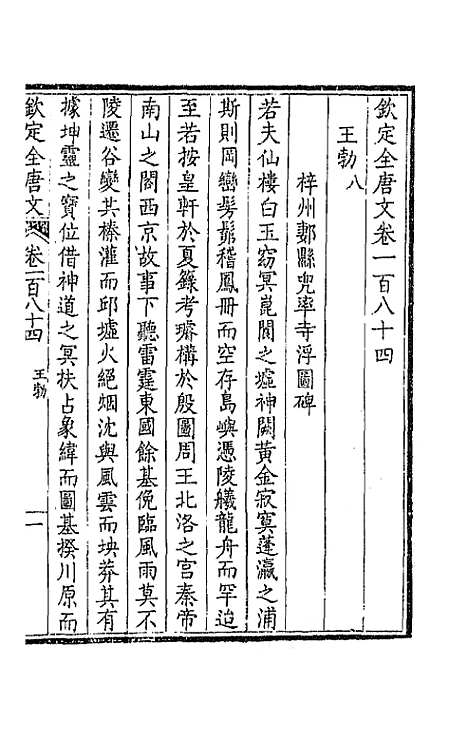 欽定全唐文卷一百八十四
王勃八
梓州郪縣兜率寺浮圖碑
若夫仙樓白玉窈冥崑閬之墟神闕黃金寂寞蓬瀛之浦
斯則岡巒髣髴稽鳳冊而空存島嶼憑陵艤龍舟而罕迨
至若按皇軒於夏籙考璿構於殷圖周王北洛之宮秦帝
南山之閣西京故事下聽雷霆東國餘基俛臨風雨莫不
陵遷谷變共榛灌而邱墟火絕烟沈與風雲而坱莽其有
據坤靈之寶位借神道之冥扶占象緯而圖基揆川原而
欽定全唐文
卷一百八十四
王勃
一